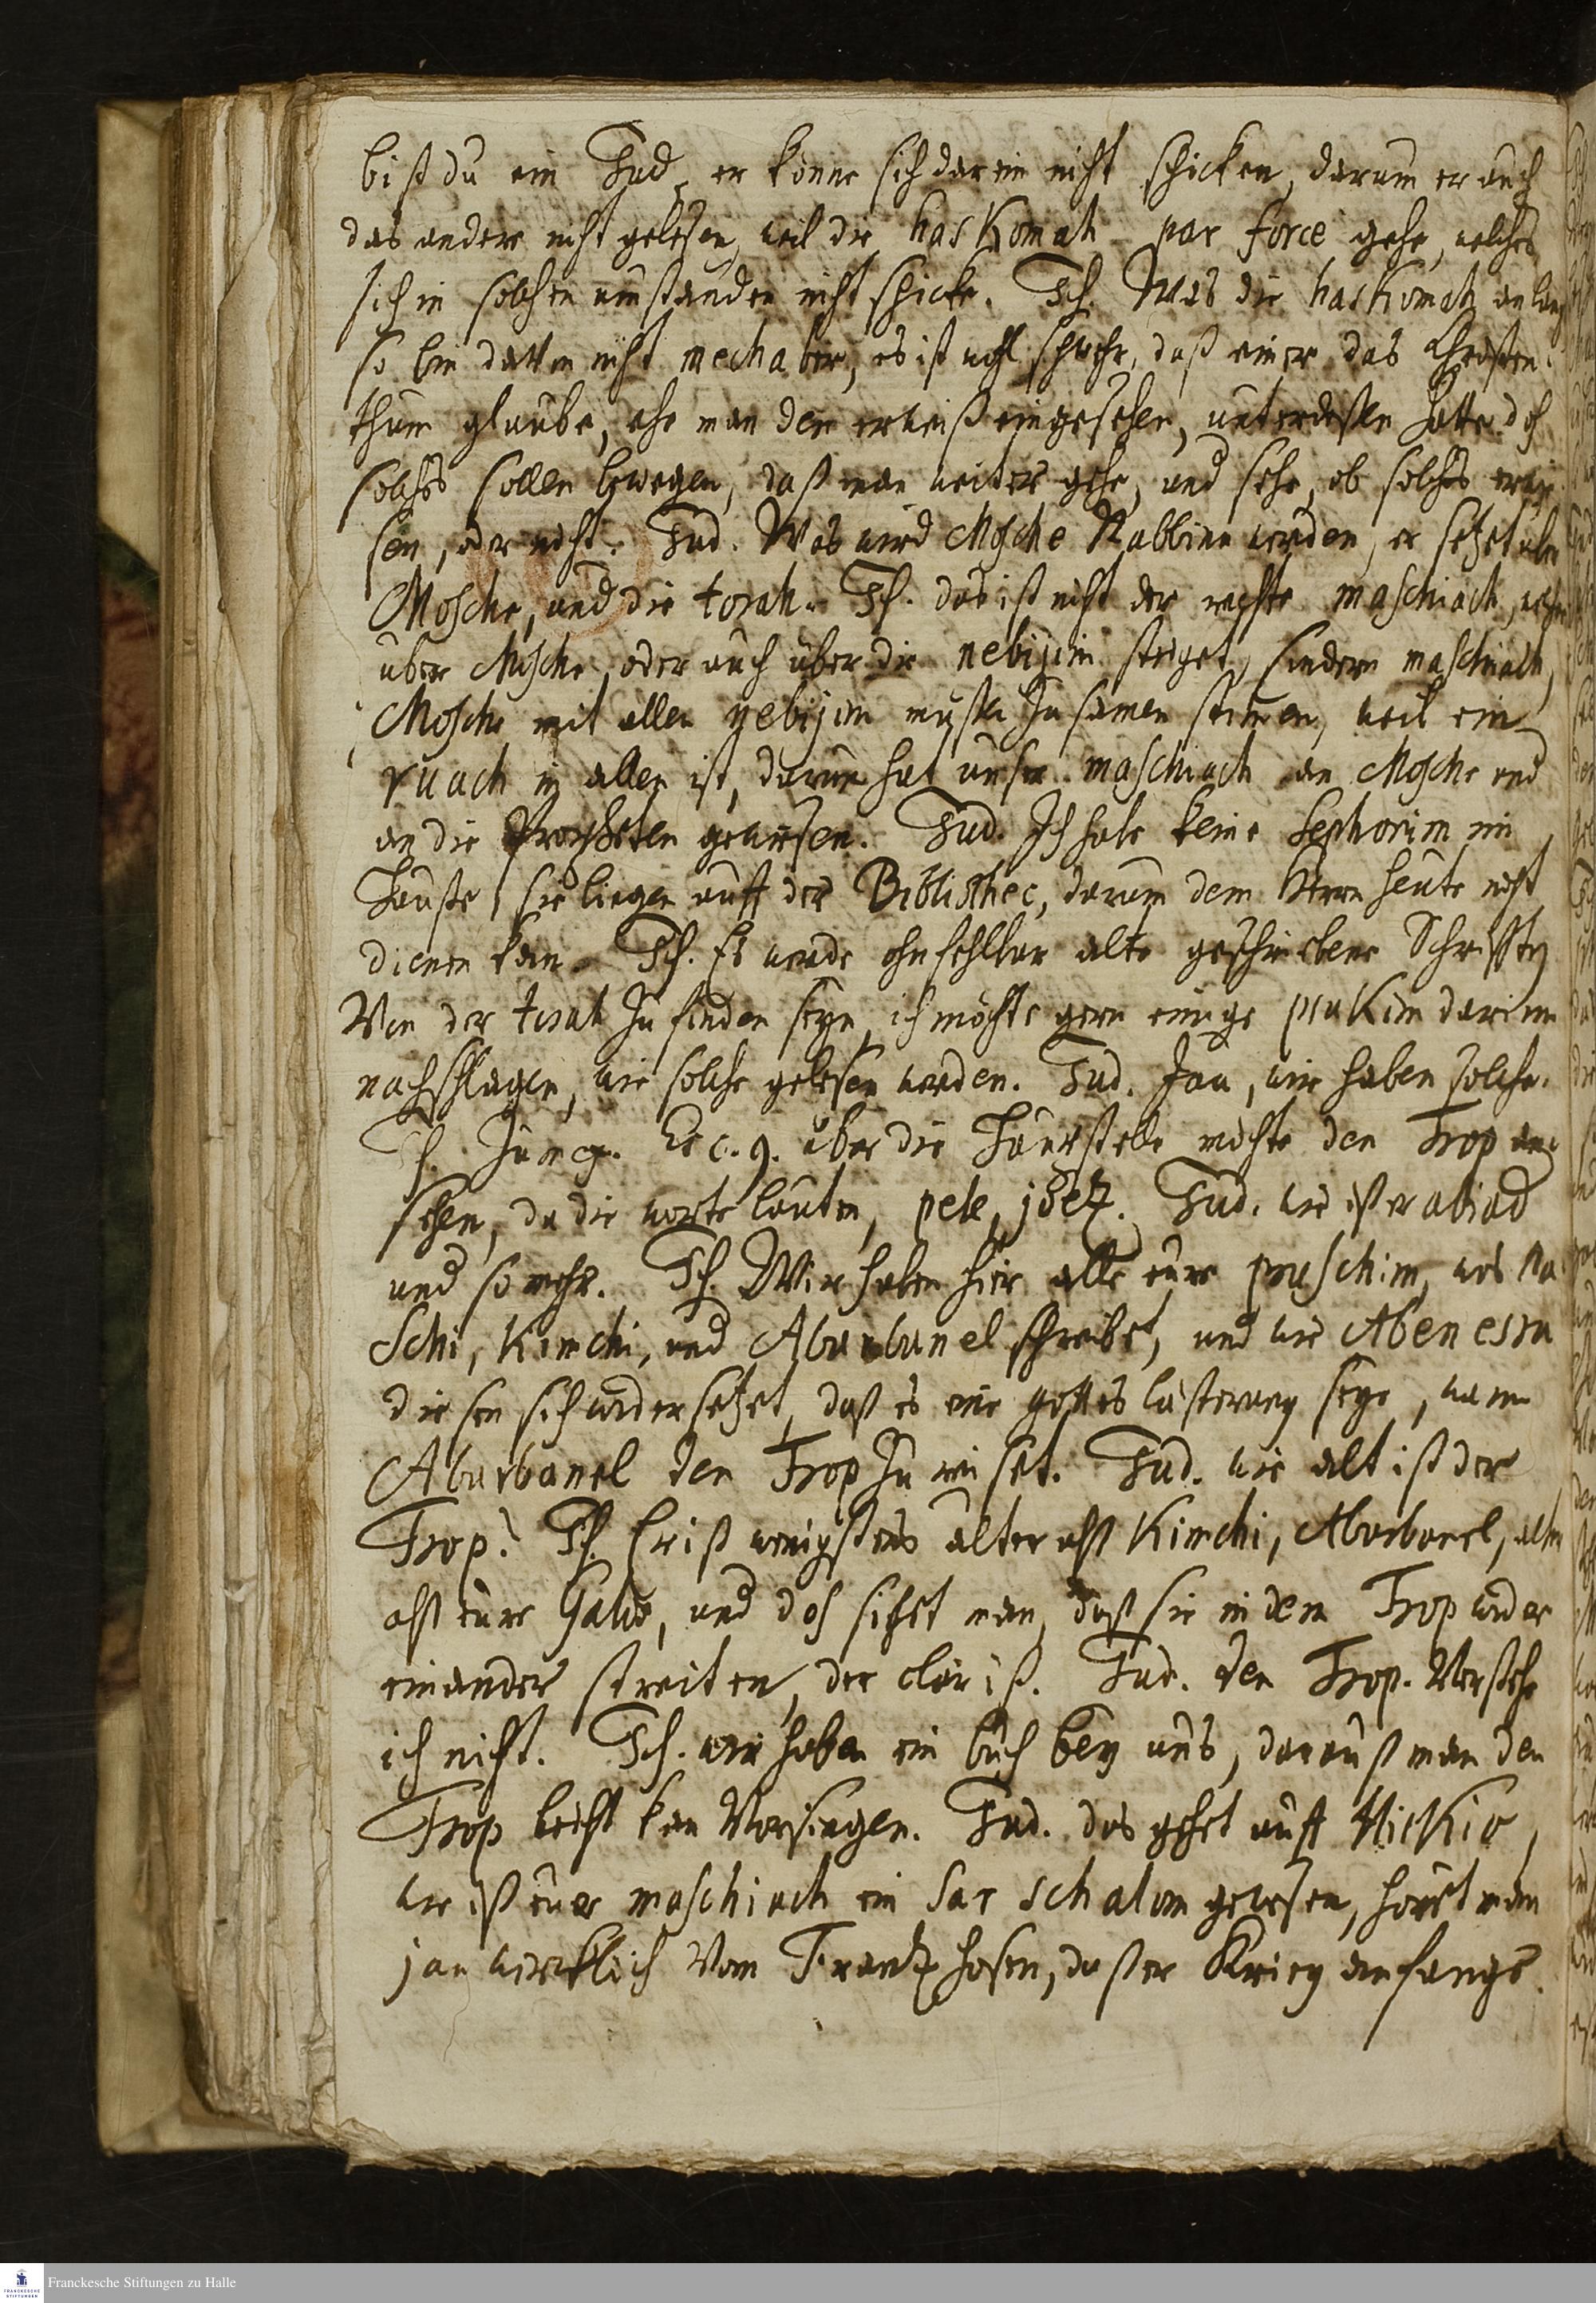 bist du ein Jud, er könne sich darein nicht schicken, darum er auch
das andere nicht gelesen, weil die haskomah par force gehe, welches
sich in solchen umständen nicht schicke. Ich. Was die haskomah anlang
so bin davon nicht mechaber, es ist wohl schwehr, daß einer das Christen-
thum glaube, ehe man den erweiß eingesehen, unterdessen hätte doch
solches sollen bewegen, daß man weiter gehe, und sehe, ob solches erwie
sen, oder nicht. Jud. Was wird Mosche Rabbinu werden, er setzet über
Mosche, und die torah. Ich. das ist nicht der rechte maschiach, welcher
über Mosche oder auch über die nebijim steiget, sondern maschiach,
Mosche mit allen nebijim müssen zusamen stimen, weil ein
ruach in allen ist, darum hat unser maschiach an Mosche und
an die Propheten gewiesen. Jud. Ich habe keine sephorim im
Hause, sie liegen auff der Bibliothec, darum dem Herrn heute nicht
dienen kan. Ich. Es werde ohnfehlbar alte geschriebene Schrifften
Von der torah zu finden seyn, ich möchte gern einige psukim darinn
nachschlagen, wie solche gelesen werden. Jud. Jaa, wir haben solche.
Ich. Jes. c. 9. über die stelle möchte den Trop an-
sehen, da die worte lauten, pele, joez. Jud. wie ist er abiad
und so mehr. Ich. Wir haben hier alle eure pruschim, was Ra
schi, Kimchi, und Abarbanel schreibet, und wie Abenesra
diesen sich widersetzet, daß es eine gottes lästerung seye, wann
Abarbanel den Trop zureiset. Jud. wie alt ist der
Trop? Ich. Er ist wenigstens älter als Kimchi, Abarbanel, älter
als eure Galus, und doch sihet man, daß sie in dem Trop wider
einander streiten, der clar ist. Jud. den Trop. Verstehe
ich nicht. Ich. wir haben ein buch bey uns, darauß man den
Trop leicht kan Vorsingen. Jud. das gehet auff Hiskio,
wie ist euer maschiach ein sar schalom gewesen, höret man
jaa wirklich Vom Frantzhosen, daß er Krieg anfange.
Franckesche Stiftungen zu Halle